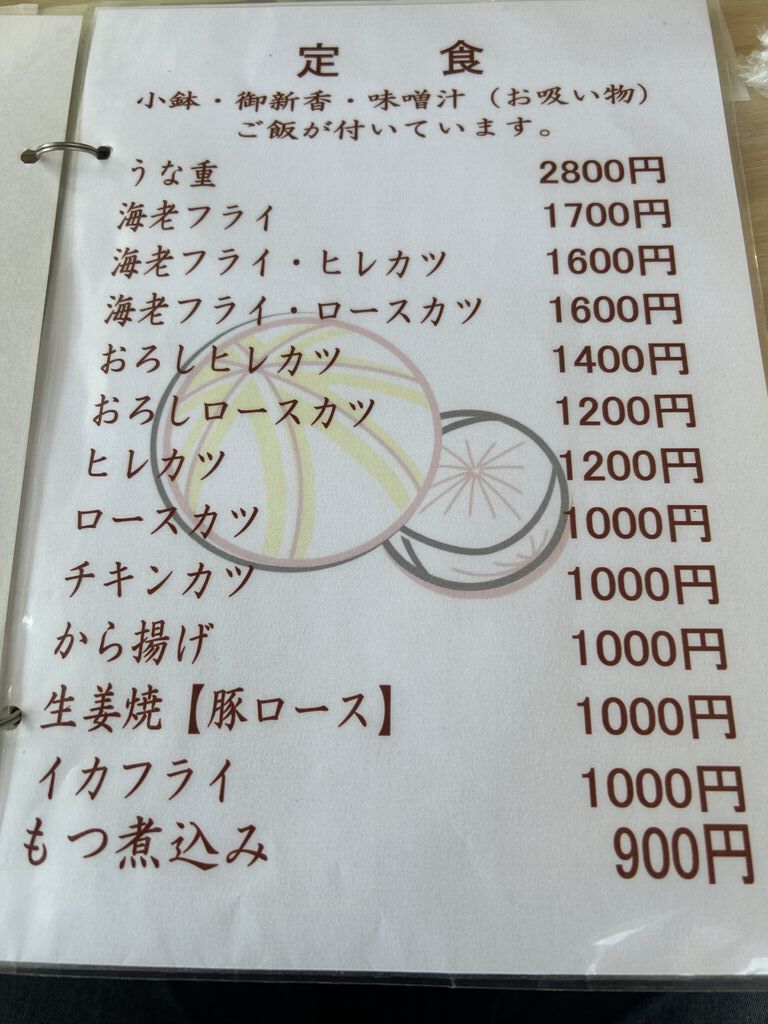 定 食
小鉢・御新香・味噌汁（お吸い物）
ご飯が付いています。
うな重 2800円
海老フライ 1700円
海老フライ・ヒレカツ 1600円
海老フライ・ロースカツ 1600円
おろしヒレカツ 1400円
おろしロースカツ 1200円
ヒレカツ 1200円
ロースカツ 1000円
チキンカツ 1000円
から揚げ 1000円
生姜焼【豚ロース】 1000円
イカフライ 1000円
もつ煮込み 900円